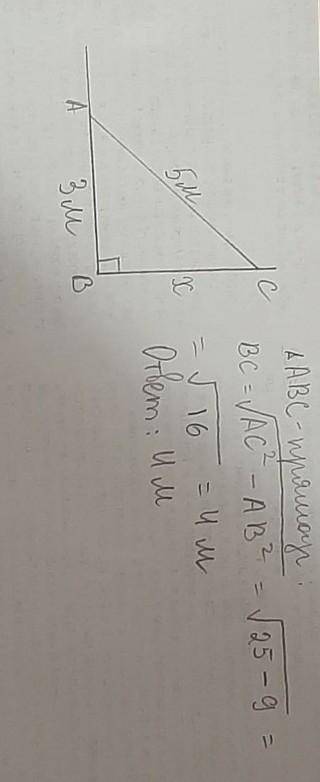 A
5м
C
3м
B
x
△ABC - прямоуг:
BC = √AC² - AB² = √25 - 9 =
= √16 = 4м
Ответ: 4м